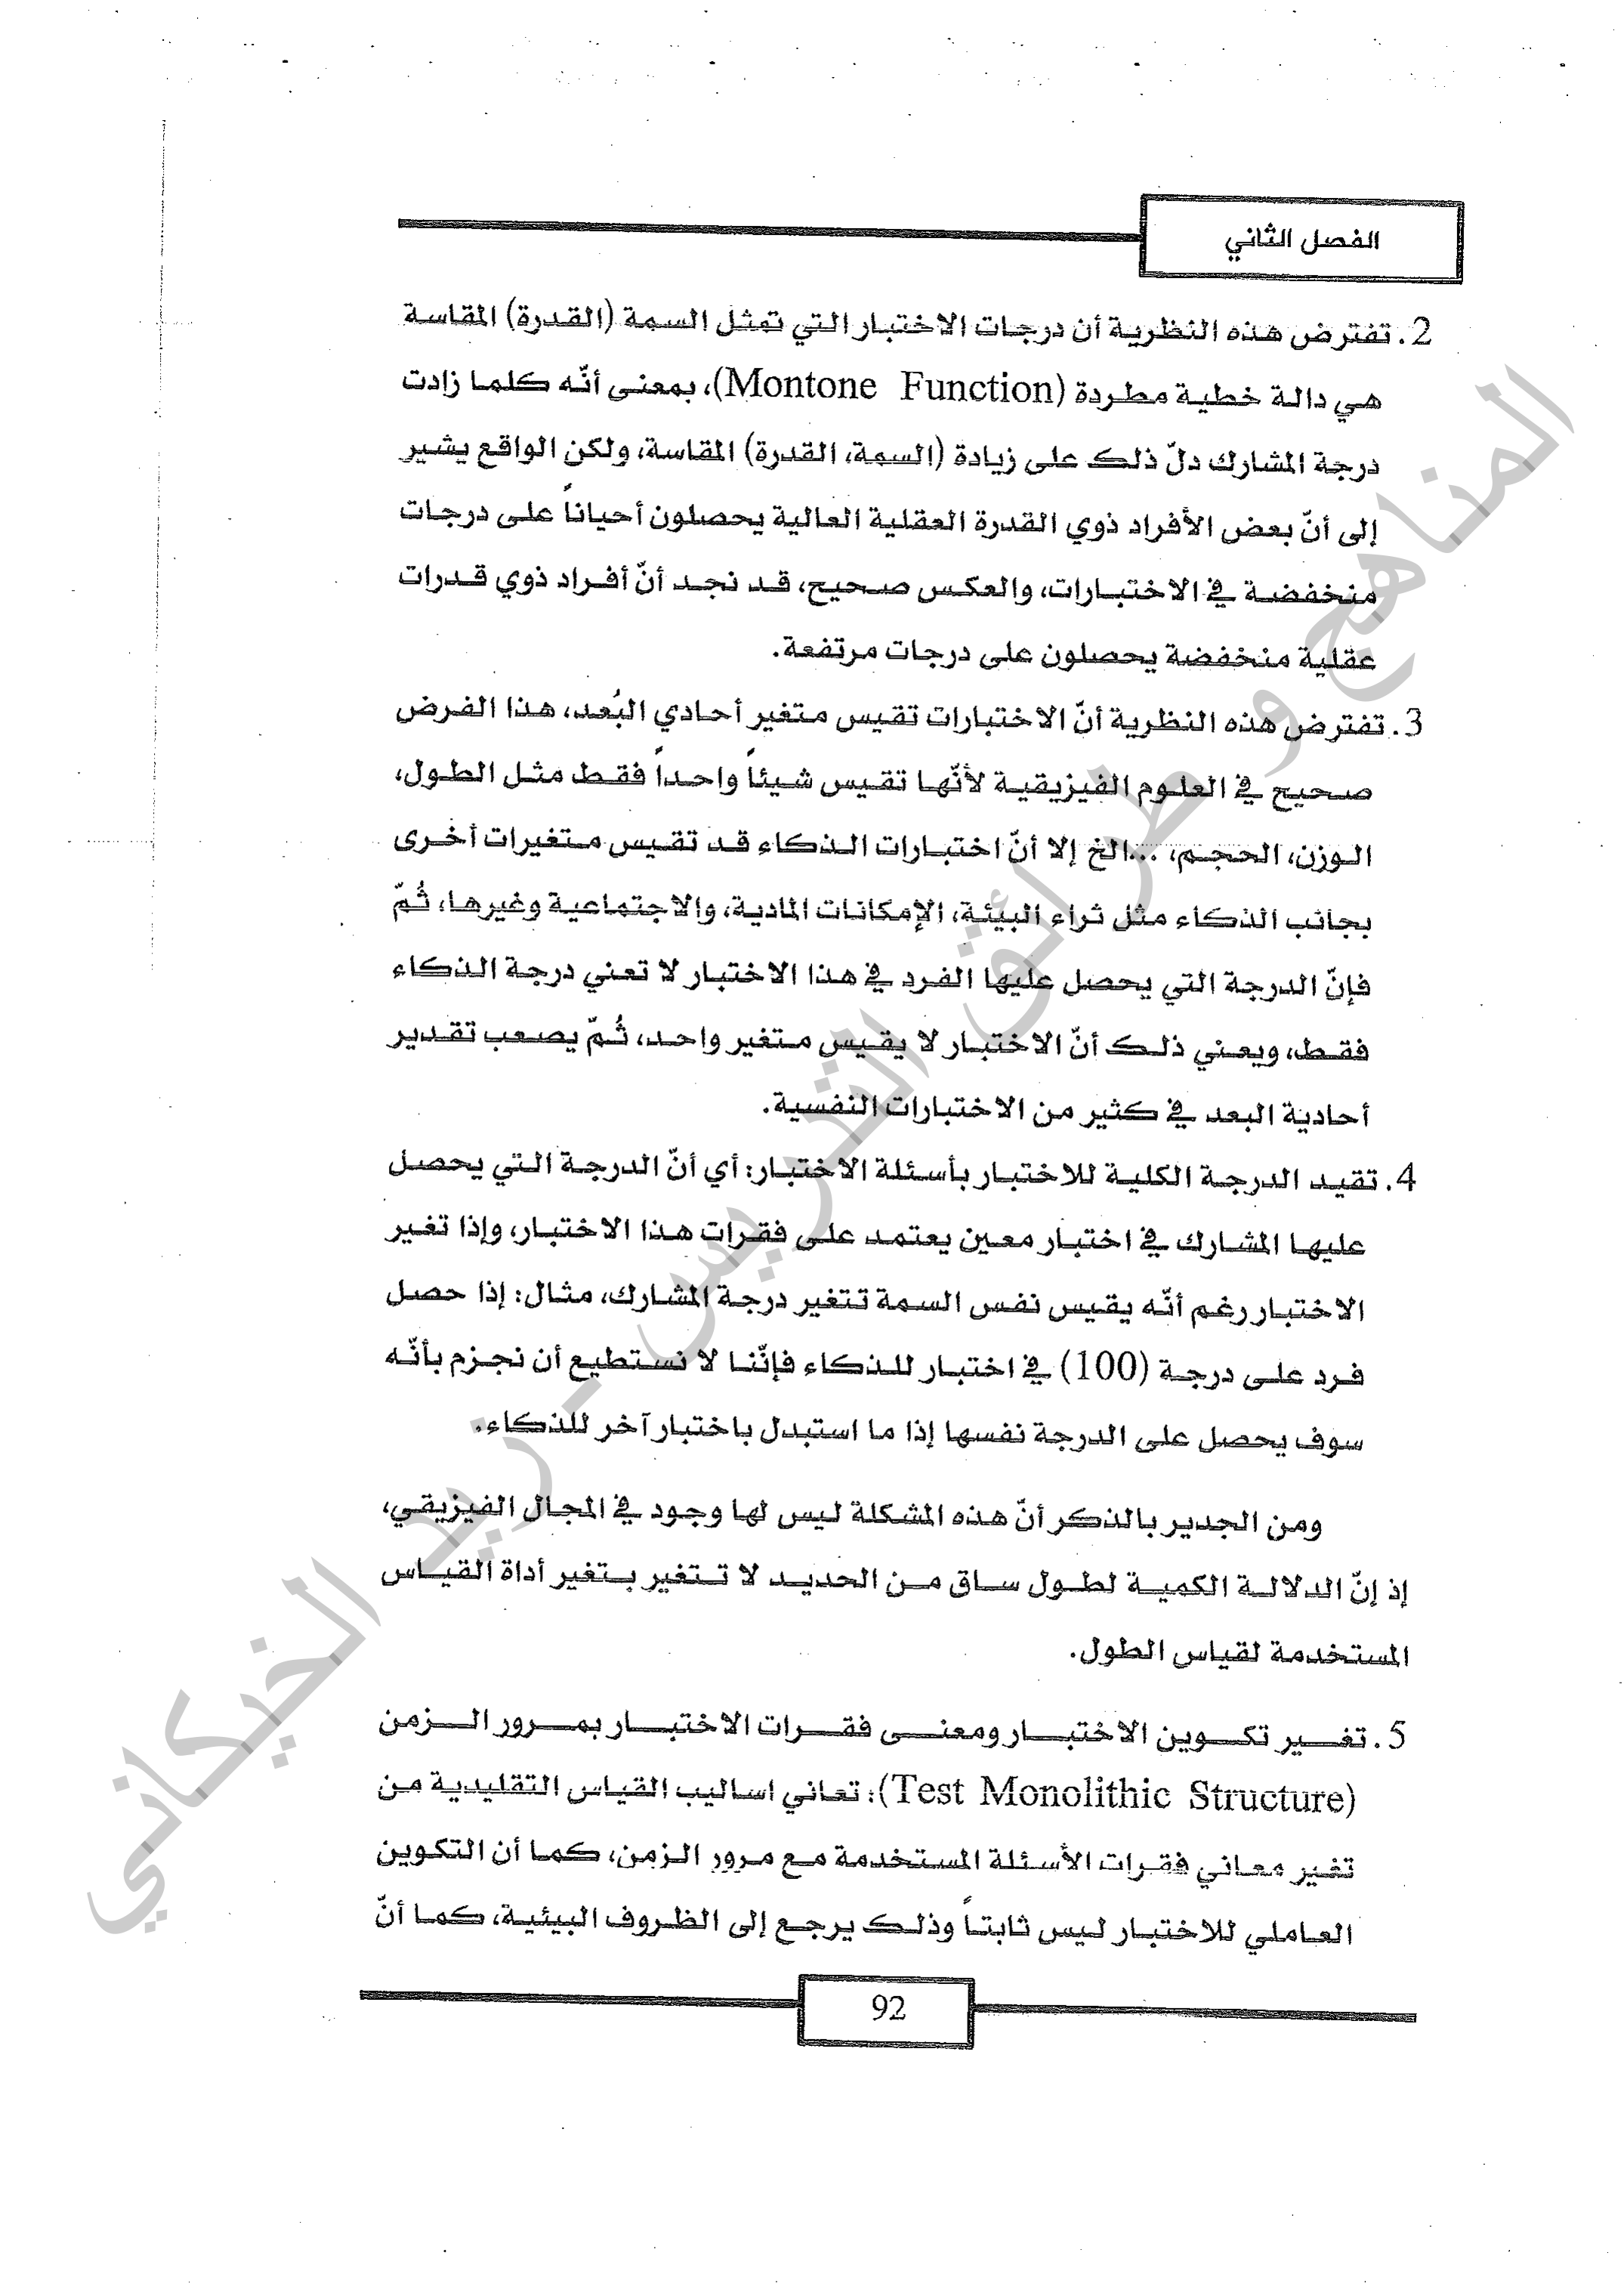 الفصل الثاني
2. تفترض هذه النظرية أن درجات الاختبار التي تمثل السمة (القدرة) المقاسة
هي دالة خطية مطردة (Montone Function)، بمعنى أنّه كلما زادت
درجة المشارك دلّ ذلك على زيادة (السمة، القدرة) المقاسة، ولكن الواقع يشير
إلى أنّ بعض الأفراد ذوي القدرة العقلية العالية يحصلون أحياناً على درجات
منخفضة في الاختبارات، والعكس صحيح، قد نجد أنّ أفراد ذوي قدرات
عقلية منخفضة يحصلون على درجات مرتفعة.
3. تفترض هذه النظرية أنّ الاختبارات تقيس متغير أحادي البُعد، هذا الفرض
صحيح في العلوم الفيزيقية لأنّها تقيس شيئاً واحداً فقط مثل الطول،
الوزن، الحجم، ...الخ إلا أنّ اختبارات الذكاء قد تقيس متغيرات أخرى
بجانب الذكاء مثل ثراء البيئة، الإمكانات المادية، والاجتماعية وغيرها، ثُمّ
فإنّ الدرجة التي يحصل عليها الفرد في هذا الاختبار لا تعني درجة الذكاء
فقط، ويعني ذلك أنّ الاختبار لا يقيس متغير واحد، ثُمّ يصعب تقدير
أحادية البعد في كثير من الاختبارات النفسية.
4. تقيد الدرجة الكلية للاختبار بأسئلة الاختبار: أي أنّ الدرجة التي يحصل
عليها المشارك في اختبار معين يعتمد على فقرات هذا الاختبار، وإذا تغير
الاختبار رغم أنّه يقيس نفس السمة تتغير درجة المشارك، مثال: إذا حصل
فرد على درجة (100) في اختبار للذكاء فإنّنا لا نستطيع أن نجزم بأنّه
سوف يحصل على الدرجة نفسها إذا ما استبدل باختبار آخر للذكاء.
ومن الجدير بالذكر أنّ هذه المشكلة ليس لها وجود في المجال الفيزيقي،
إذ إنّ الدلالة الكمية لطول ساق من الحديد لا تتغير بتغير أداة القياس
المستخدمة لقياس الطول.
5. تغير تكوين الاختبار ومعنى فقرات الاختبار بمرور الزمن
(Test Monolithic Structure): تعاني اساليب القياس التقليدية من
تغير معاني فقرات الأسئلة المستخدمة مع مرور الزمن، كما أن التكوين
العاملي للاختبار ليس ثابتاً وذلك يرجع إلى الظروف البيئية، كما أنّ
92
المناهج و طرائق التدريس - زيد الخيكاني